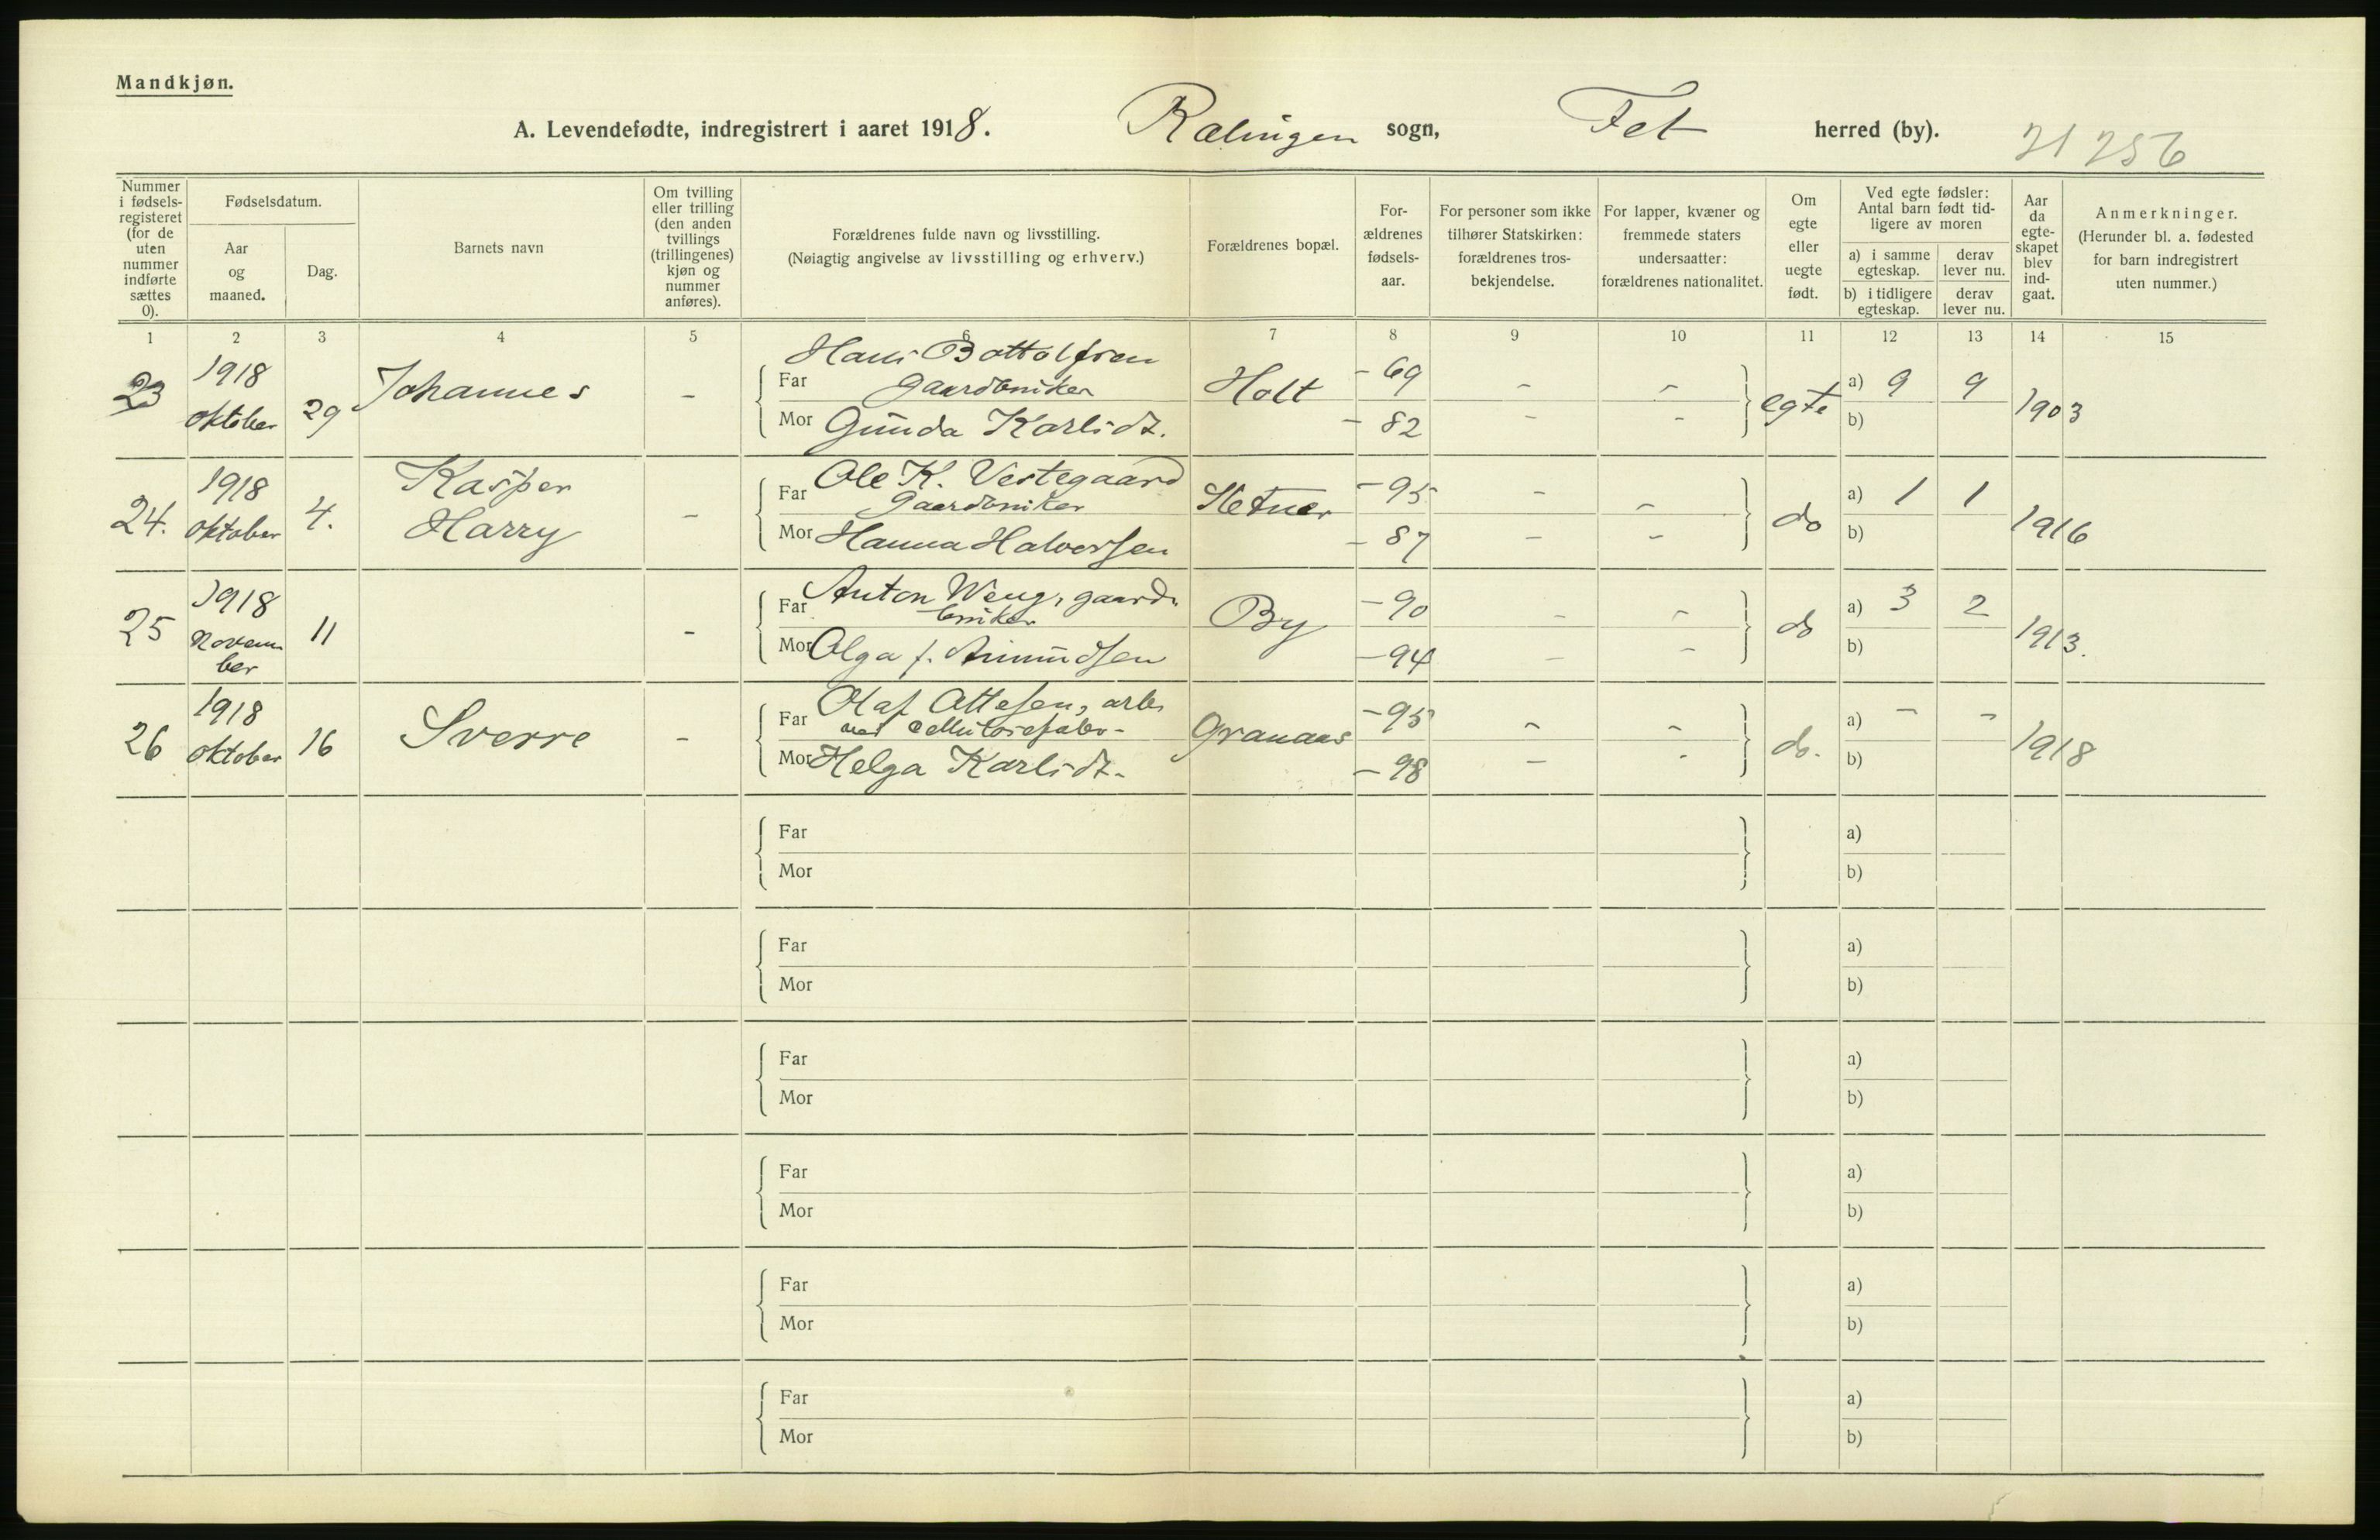 Mandkjøn.
A. Levendefødte, indregistrert i aaret 1918. Rælingen sogn, Fet herred (by).
Nummer i fødsels-registeret (for de uten nummer indførte sættes 0).
Fødselsdatum.
Aar og maaned.
Dag.
Barnets navn
Om tvilling eller trilling (den anden tvillings (trillingenes) kjøn og nummer anføres).
Forældrenes fulde navn og livsstilling.
(Nøiagtig angivelse av livsstilling og erhverv.)
Forældrenes bopæl.
For-ældrenes fødsels-aar.
For personer som ikke tilhører Statskirken: forældrenes tros-bekjendelse.
For lapper, kvæner og fremmede staters undersaatter: forældrenes nationalitet.
Om egte eller uegte født.
Ved egte fødsler: Antal barn født tid-ligere av moren
a) i samme egteskap.
derav lever nu.
b) i tidligere egteskap.
derav lever nu.
Aar da egte-skapet blev ind-gaat.
Anmerkninger.
(Herunder bl. a. fødested for barn indregistrert uten nummer.)
1 2 3 4 5 6 7 8 9 10 11 12 13 14 15
23 1918 oktober 29 Johannes - Far Hans Bottolfsen gaardbruker Holt - 69 - - egte a) 9 9 1903
Mor Gunda Karlsdt. - 82 - - b)
24. 1918 oktober 4. Kasper Harry - Far Ole K. Vestegaard gaardbruker - 95 - - do a) 1 1 1916
Mor Hanna Halvorsen - 87 - - b)
25 1918 Novem ber 11 - Far Anton Weng, gaard bruker By - 90 - - do a) 3 2 1913.
Mor Olga f. Amundsen - 94 - - b)
26 1918 oktober 16 Sverre - Far Olaf Ottesen, arb. ved cellulosefabr- Granaas - 95 - - do. a) - - 1918
Mor Helga Karlsdt. - 98 - - b)
Far a)
Mor b)
Far a)
Mor b)
Far a)
Mor b)
Far a)
Mor b)
Far a)
Mor b)
Far a)
Mor b)